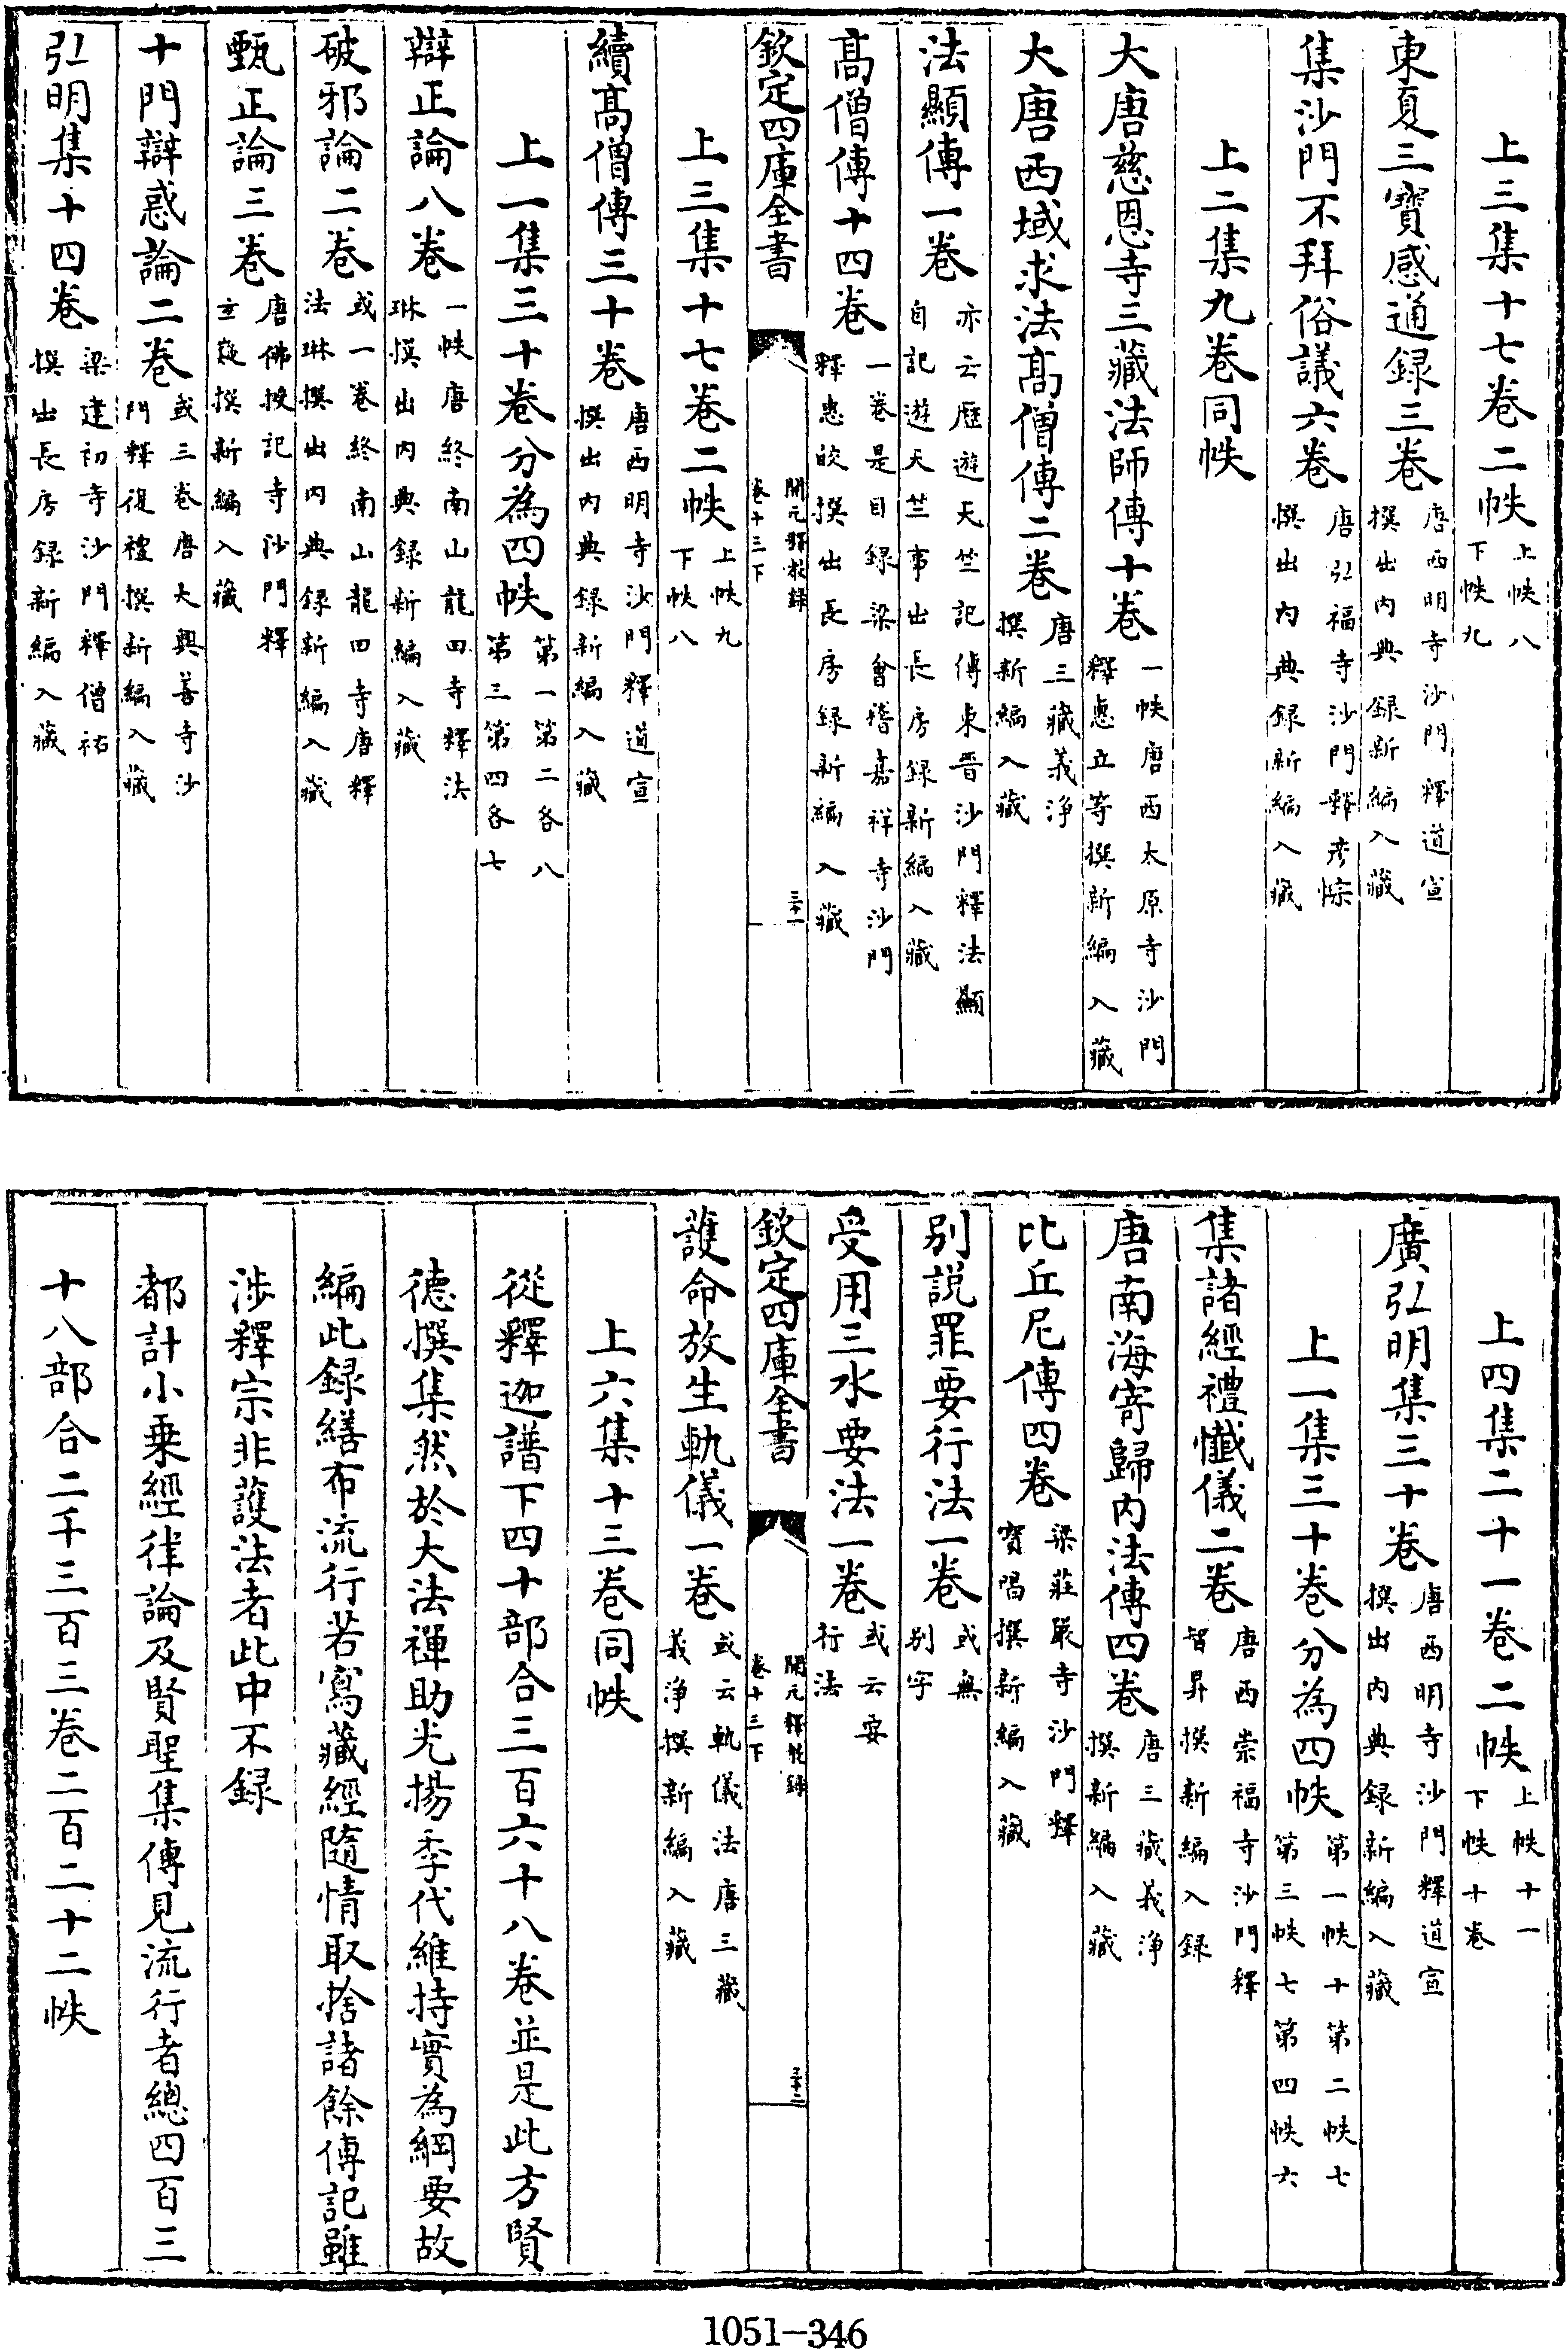 上三集十七卷二帙上帙八下帙九
東夏三寶感通録三卷唐西明寺沙門釋道宣撰出内典録新編入藏
集沙門不拜俗議六卷唐弘福寺沙門釋彦悰撰出内典録新編入藏
上二集九卷同帙
大唐慈恩寺三藏法師傳十卷一帙唐西太原寺沙門釋惠立等撰新編入藏
大唐西域求法髙僧傳二卷唐三藏義浄撰新編入藏
法顯傳一卷亦云歴遊天竺記傳東晋沙門釋法顯自記遊天竺事出長房録新編入藏
髙僧傳十四卷一卷是目録梁會稽嘉祥寺沙門釋惠皎撰出長房録新編入藏
欽定四庫全書 開元釋教録卷十三下 三十一
上三集十七卷二帙上帙九下帙八
續髙僧傳三十卷唐西明寺沙門釋道宣撰出内典録新編入藏
上一集三十卷分為四帙第一第二各八第三第四各七
辯正論八卷一帙唐終南山龍田寺釋法琳撰出内典録新編入藏
破邪論二卷或一卷終南山龍田寺唐釋法琳撰出内典録新編入藏
甄正論三卷唐佛授記寺沙門釋玄嶷撰新編入藏
十門辯惑論二卷或三卷唐大興善寺沙門釋復禮撰新編入藏
弘明集十四卷梁建初寺沙門釋僧祐撰出長房録新編入藏
上四集二十一卷二帙上帙十一下帙十卷
廣弘明集三十卷唐西明寺沙門釋道宣撰出内典録新編入藏
上一集三十卷分為四帙第一帙十第二帙七第三帙七第四帙六
集諸經禮懺儀二卷唐西崇福寺沙門釋智昇撰新編入録
唐南海寄歸内法傳四卷唐三藏義浄撰新編入藏
比丘尼傳四卷梁莊嚴寺沙門釋寶唱撰新編入藏
别説罪要行法一卷或無别字
受用三水要法一卷或云要行法
欽定四庫全書 開元釋教録卷十三下 三十二
護命放生軌儀一卷或云軌儀法唐三藏義浄撰新編入藏
上六集十三卷同帙
從釋迦譜下四十部合三百六十八卷並是此方賢
德撰集然於大法禆助光揚季代維持實為綱要故
編此録繕布流行若寫藏經隨情取捨諸餘傳記雖
涉釋宗非護法者此中不録
都計小乗經律論及賢聖集傳見流行者總四百三
十八部合二千三百三卷二百二十二帙
1051-346